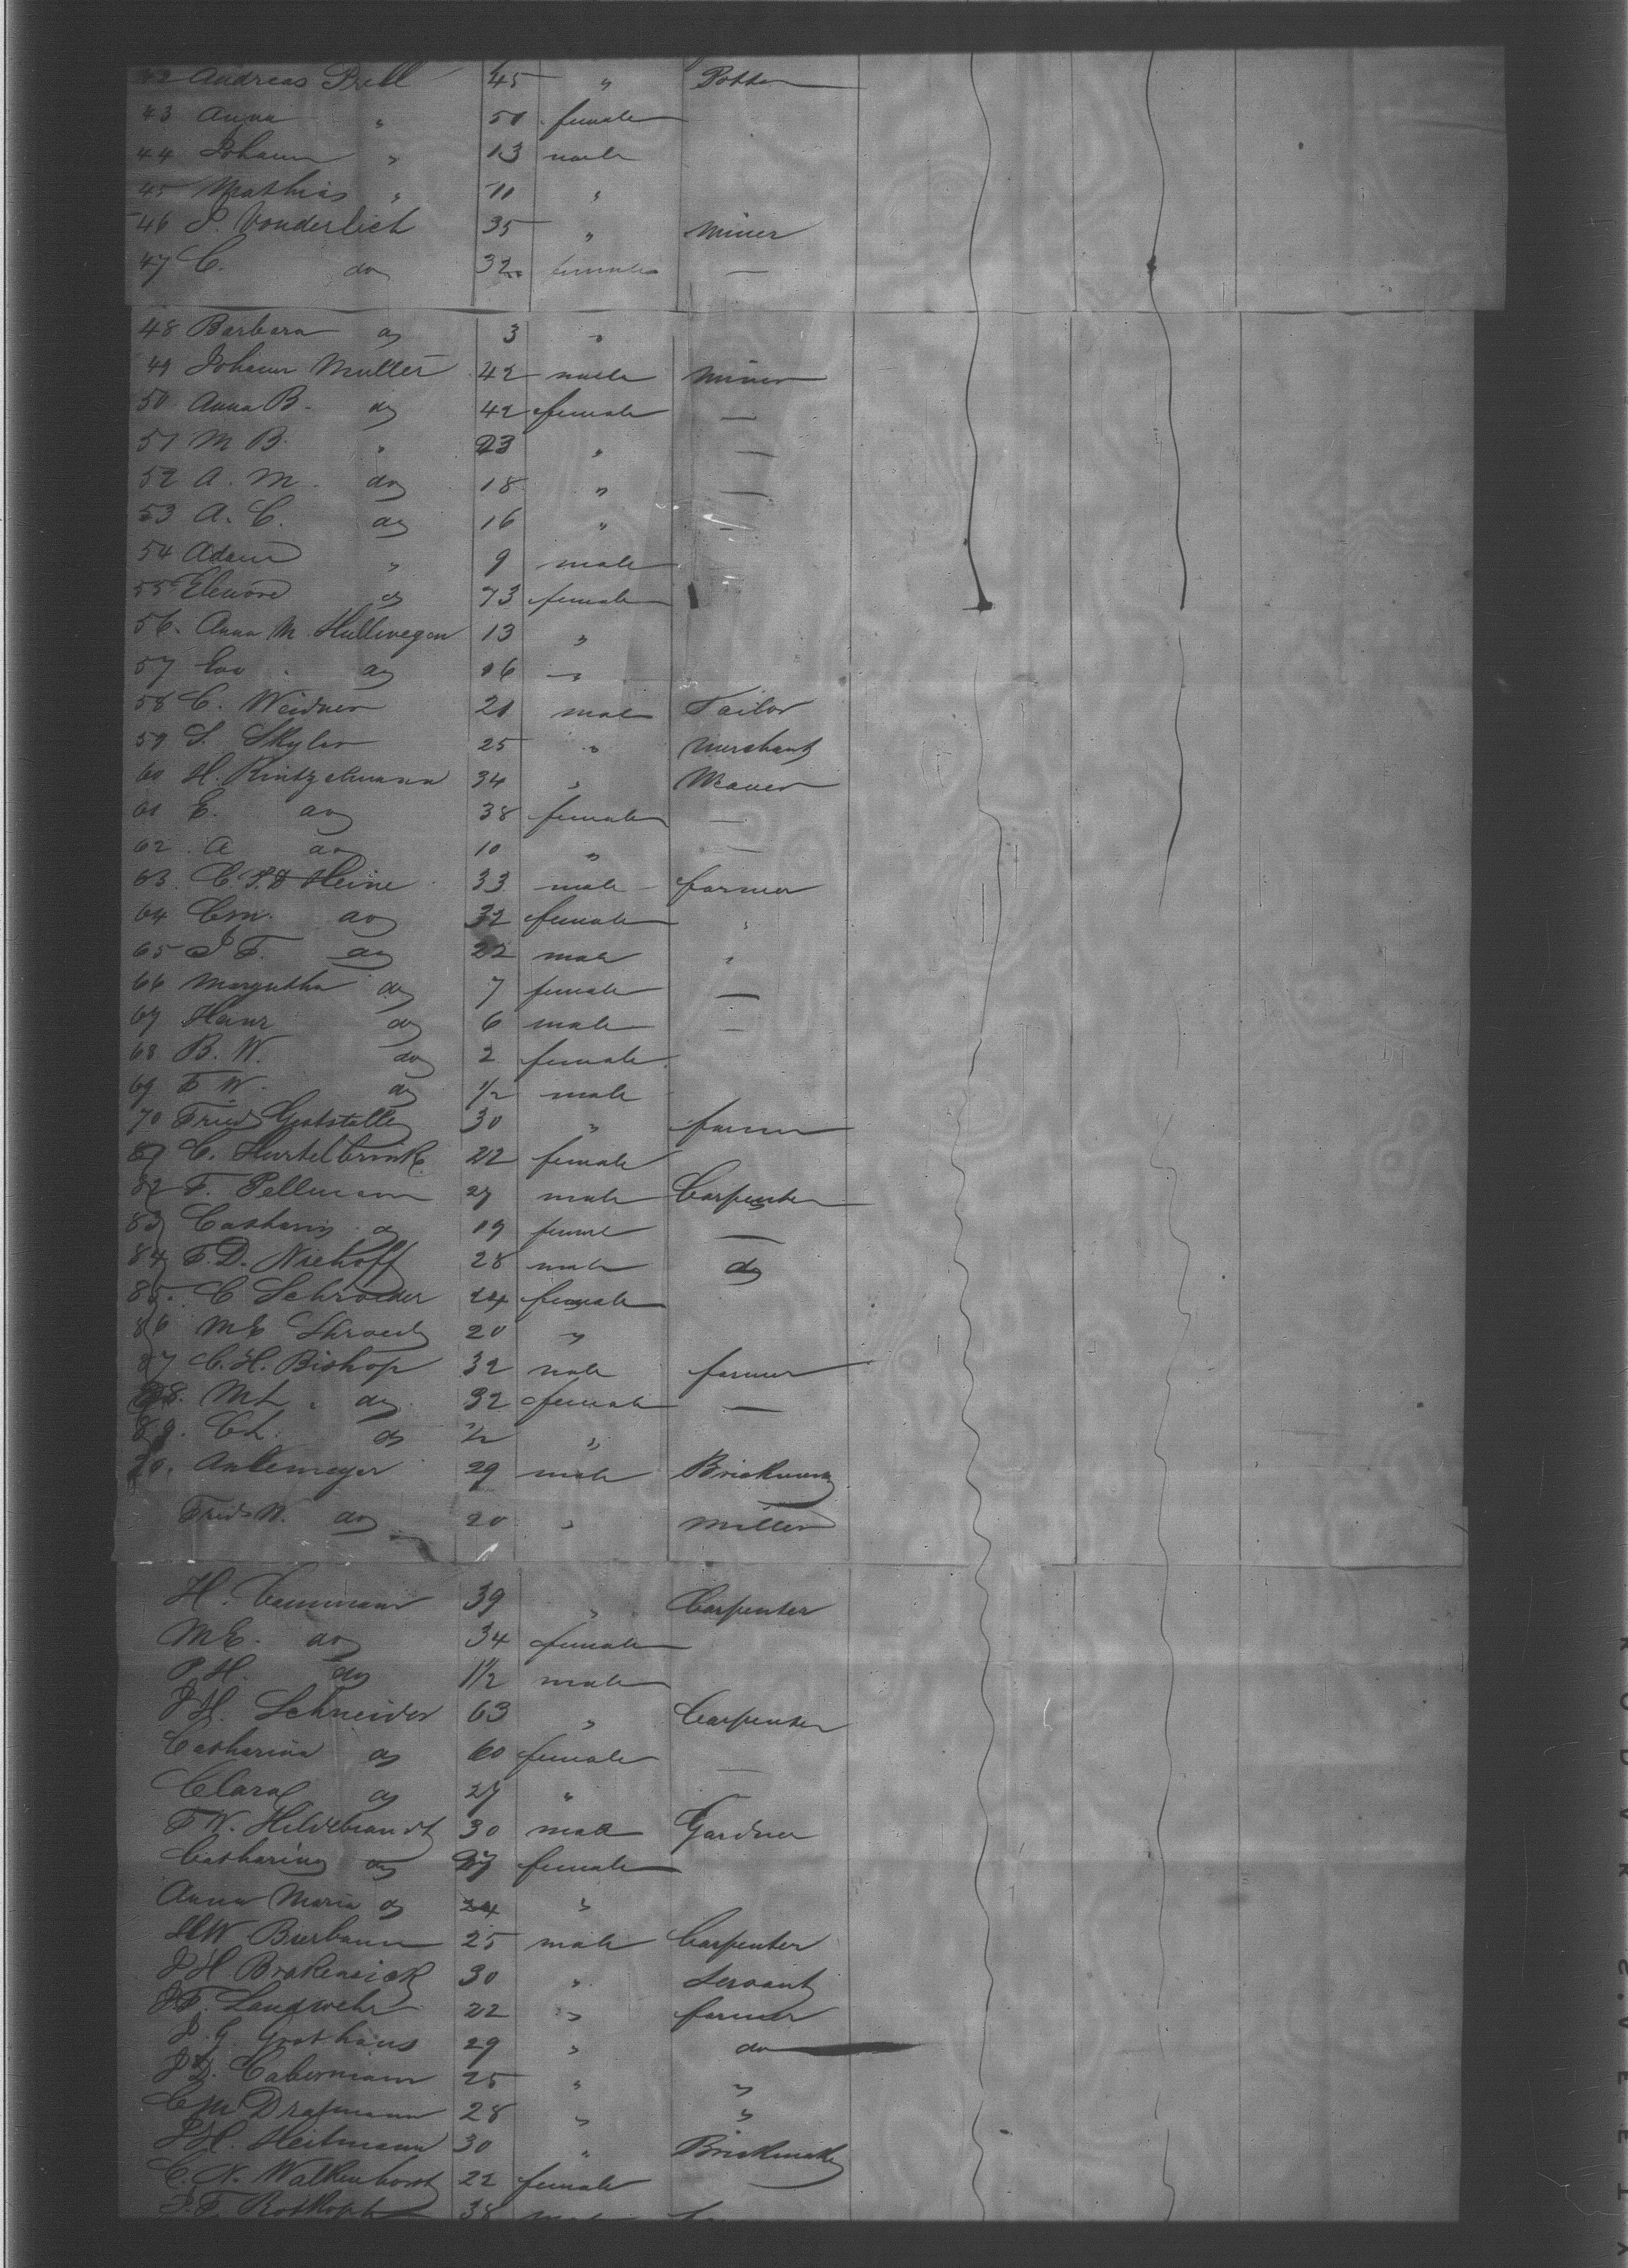 42 Andreas Prell 45 " Potter
43 Anna " 50 female
44 Johann " 13 male
45 Mathias " 11 "
46 P. Vonderlich 35 " Miner
47 C. do 32 female —
48 Barbara do 3 "
49 Johann Muller 42 male Miner
50 Anna B. do 42 female —
51 M B. " 23 " —
52 A. M. do 18 " —
53 A. C. do 16 " —
54 Adam " 9 male
55 Elenore do 73 female
56. Anna M. Hullwegen 13 "
57 Eva do 16 "
58 C. Weidner 21 male Tailor
59 S. Skyler 25 " Merchant
60 H. Kintzelmann 34 " Weaver
61 E. do 38 female —
62 A do 10 " —
63 C. F. D Heine 33 male farmer
64 Cm. do 32 female "
65 J F. do 22 male "
66 Margretha do 7 female —
67 Hanz do 6 male —
68 B. W. do 2 female
69 F W. do 1/2 male
70 Fried Gotstalle 30 " farmer
81 C. Hurtelbrink 22 female
82 F. Pellmann 27 male Carpenter
83 Catharin do 19 femal —
84 F. D. Niehoff 28 male do
85. C Schroeder 24 female
86 ME Shroed 20 "
87 C. H. Bishop 32 male farmer
88. ML. do 32 female —
89. CL. do 1/2 "
90. Aulemeyer 29 male
Fried W. do 20 " Miller
H. Cammann 39 " Carpenter
ME. do 34 female
P. H. do 1 1/2 male
J H. Schneider 63 " Carpenter
Catharina do 60 female
Clara do 27 "
F W. Hildebrandt 30 male Gardner
Catharina do 27 female
Anna Maria do 24 "
HW Bierbaum 25 male Carpenter
J H Brokensiek 30 " Servant
J F. Landwehr 22 " farmer
J. G. Grothaus 29 " do
J D. Cabermann 25 " "
C M Drapmann 28 " "
J H. Heitmann 30 " Brickmaker
C. N. Walkenhorst 22 female
F. F. Rotkopf 38 male
KODAK SAFETY